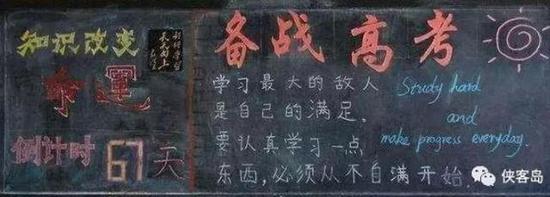 知识改变
命运
倒计时 67 天
好好学习
天天向上
备战高考
学习最大的敌人
是自己的满足，
要认真学习一点
东西，必须从不自满开始。
Study hard
and
make progress everyday.
侠客岛